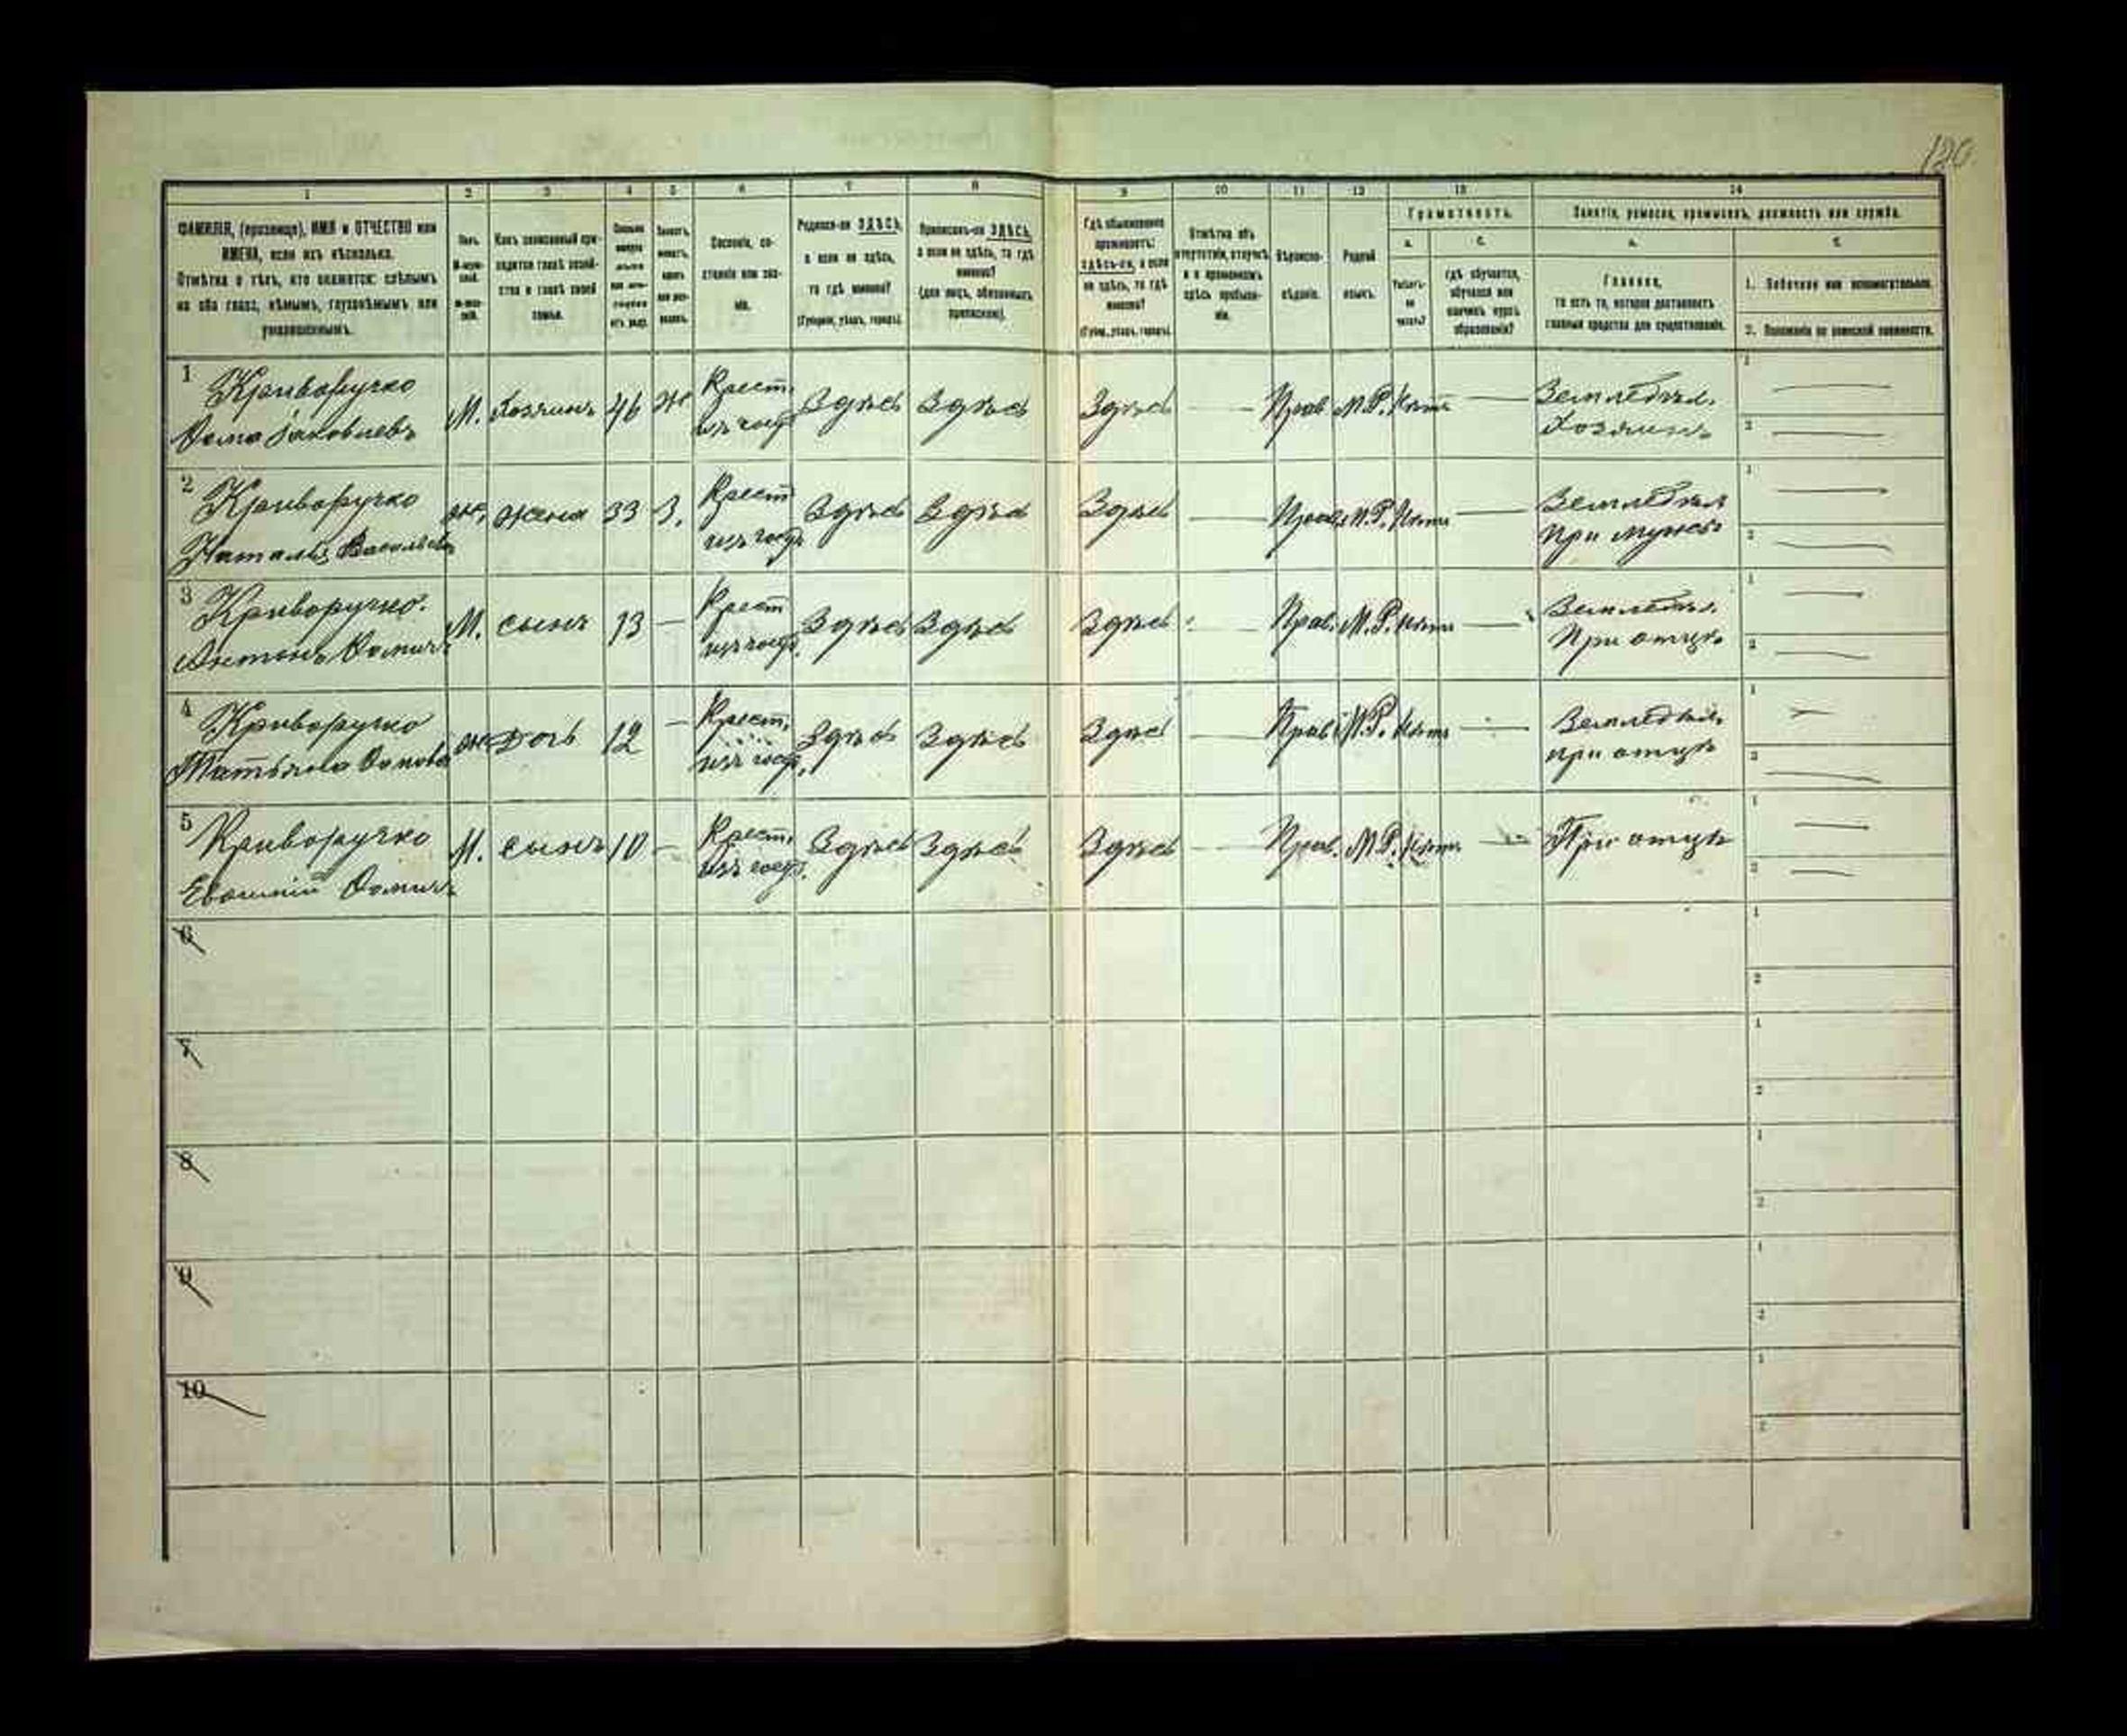 120
1 2 3 4 5 6 7 8 9 10 11 12 13 14
ФАМИЛІЯ, (прозвище), ИМЯ и ОТЧЕСТВО или
ИМЕНА, если ихъ нѣсколько.
Отмѣтка о тѣхъ, кто окажется: слѣпымъ
на оба глаза, нѣмымъ, глухонѣмымъ или
умалишеннымъ.
Полъ.
Какъ записанный при-
ходится главѣ хозяй-
ства и главѣ своей
семьи.
Сословіе, со-
стояніе или зва-
ніе.
Родился-ли ЗДѢСЬ,
а если не здѣсь,
то гдѣ именно?
(Губернія, уѣздъ, городъ).
Приписанъ-ли ЗДѢСЬ,
а если не здѣсь, то гдѣ
именно?
(для лицъ, обязанныхъ
припискою).
Гдѣ обыкновенно
проживаетъ:
ЗДѢСЬ-ли, а если
не здѣсь, то гдѣ
именно?
(Губер., уѣздъ, городъ).
Отмѣтка объ
отсутствіи, отлучкѣ
и о временномъ
здѣсь пребыва-
ніи.
Вѣроиспо-
вѣданіе.
Родной
языкъ.
Грамотность.
а. б.
Умѣетъ-
ли
читать?
гдѣ обучается,
обучался или
кончилъ курсъ
образованія?
Занятіе, ремесло, промыселъ, должность или служба.
а. б.
Главное,
то есть то, которое доставляетъ
главныя средства для существованія.
1. Побочное или вспомогательное.
2. Положеніе по воинской повинности.
1 Криворучко М. Хозяинъ 46 Ж Крест. Здѣсь Здѣсь Здѣсь — Прав. М.Р. Нѣтъ — Земледѣл. 1 —
Ѳома Яковлевъ изъ госуд. Хозяинъ 2 —
2 Криворучко ж. жена 33 З. Крест Здѣсь Здѣсь Здѣсь — Прав. М.Р. Нѣтъ — Земледѣл 1 —
Наталья изъ госуд. При мужѣ 2 —
3 Криворучко. М. сынъ 13 — Крест Здѣсь Здѣсь Здѣсь — Прав. М.Р. Нѣтъ — Земледѣл. 1 —
Антонъ Ѳомичъ изъ госуд. При отцѣ 2 —
4 Криворучко ж Дочь 12 — Крест. Здѣсь Здѣсь Здѣсь — Прав. М.Р. Нѣтъ — Земледѣл. 1 —
Татьяна Ѳомова изъ госуд. при отцѣ 2 —
5 Криворучко М. сынъ 10 — Крест. Здѣсь Здѣсь Здѣсь — Прав. М.Р. Нѣтъ — При отцѣ 1 —
Ѳомичъ изъ госуд. 2 —
6 1
2
7 1
2
8 1
2
9 1
2
10 1
2